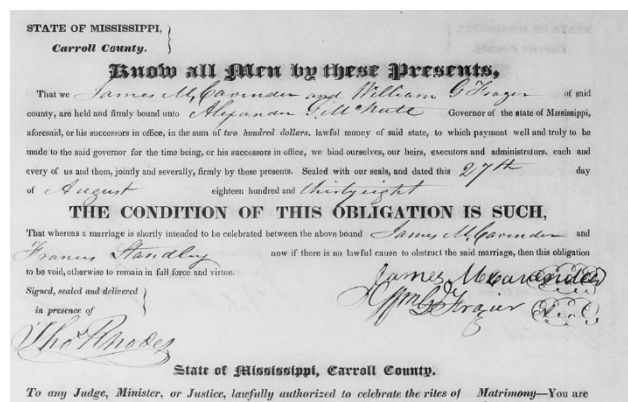 STATE OF MISSISSIPPI,
Carroll County.
Know all Men by these Presents,
That we James M. Cavinder and William G Frazer of said
county, are held and firmly bound unto Alexander G. McNutt Governor of the state of Mississippi,
aforesaid, or his successors in office, in the sum of two hundred dollars, lawful money of said state, to which payment well and truly to be
made to the said governor for the time being, or his successors in office, we bind ourselves, our heirs, executors and administrators, each and
every of us and them, jointly and severally, firmly by these presents. Sealed with our seals, and dated this 27th day
of August eighteen hundred and thirtyeight
THE CONDITION OF THIS OBLIGATION IS SUCH,
That whereas a marriage is shortly intended to be celebrated between the above bound James M. Cavinder and
Francis Standley now if there is no lawful cause to obstruct the said marriage, then this obligation
to be void, otherwise to remain in full force and virtue.
James M Cavinder
Signed, sealed and delivered
Wm G Frazier
in presence of
Thos Rhodes
State of Mississippi, Carroll County.
To any Judge, Minister, or Justice, lawfully authorized to celebrate the rites of Matrimony—You are